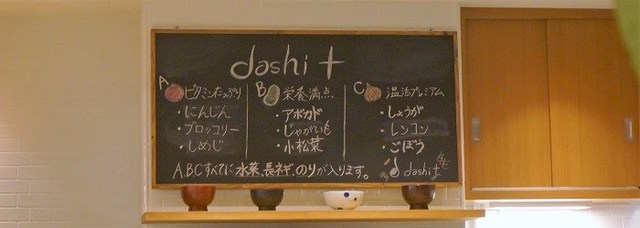 dashi +
A ビタミンたっぷり
・にんじん
・ブロッコリー
・しめじ
B 栄養満点
・アボカド
・じゃがいも
・小松菜
C 温活プレミアム
・しょうが
・レンコン
・ごぼう
A,B,Cすべてに水菜、長ネギ、のりが入ります。
dashi+